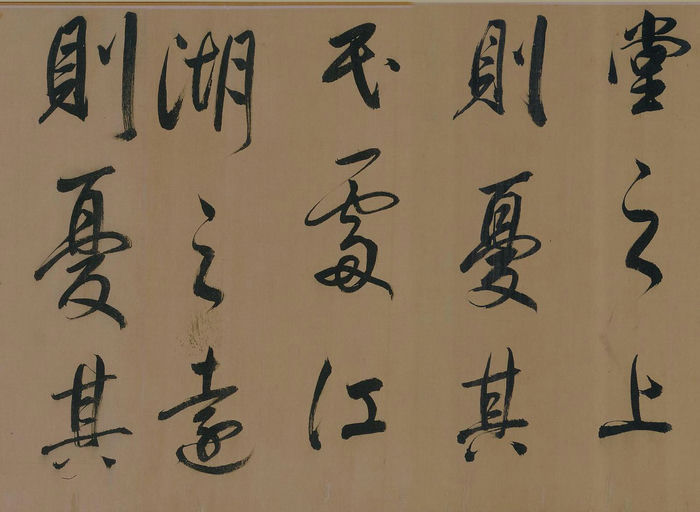 堂之上
則憂其
民處江
湖之遠
則憂其